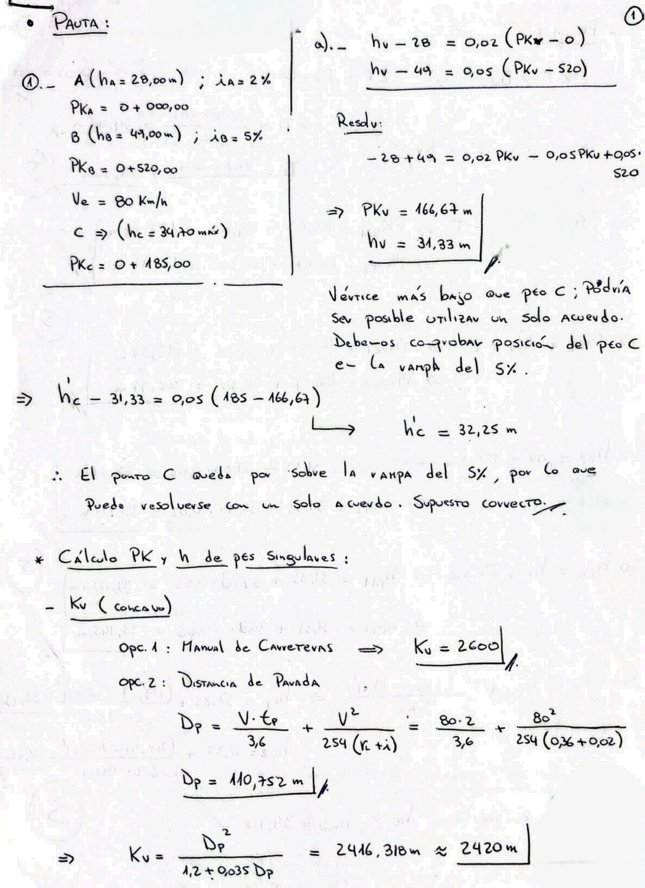 1
• PAUTA:
①.- A (hA = 28,00m) ; iA = 2%
PKA = 0 + 000,00
B (hB = 49,00m) ; iB = 5%
PKB = 0+520,00
Ve = 80 Km/h
C ⇒ (hc = 34,70 máx)
PKc = 0 + 185,00
a).- hv - 28 = 0,02 (PKv - 0)
hv - 49 = 0,05 (PKv - 520)
Resolv:
-28 + 49 = 0,02 PKv - 0,05 PKv + 0,05·
520
⇒ PKv = 166,67 m
hv = 31,33 m
Vértice más bajo que pto C ; Podría
ser posible utilizar un solo acuerdo.
Debemos comprobar posición del pto C
en la rampa del 5%.
⇒ h'c - 31,33 = 0,05 (185 - 166,67)
h'c = 32,25 m
∴ El punto C queda por sobre la rampa del 5%, por lo que
Puede resolverse con un solo acuerdo. Supuesto correcto.
* Cálculo PK y h de ptos singulares:
- Kv (concavo)
Opc. 1 : Manual de Carreteras ⇒ Kv = 2600
Opc. 2 : Distancia de Parada
Dp = V·tp/3,6 + V²/254(rl + i) = 80·2/3,6 + 80²/254(0,36+0,02)
Dp = 110,752 m
⇒ Kv = Dp²/1,2+0,035Dp = 2416,318m ≈ 2420m